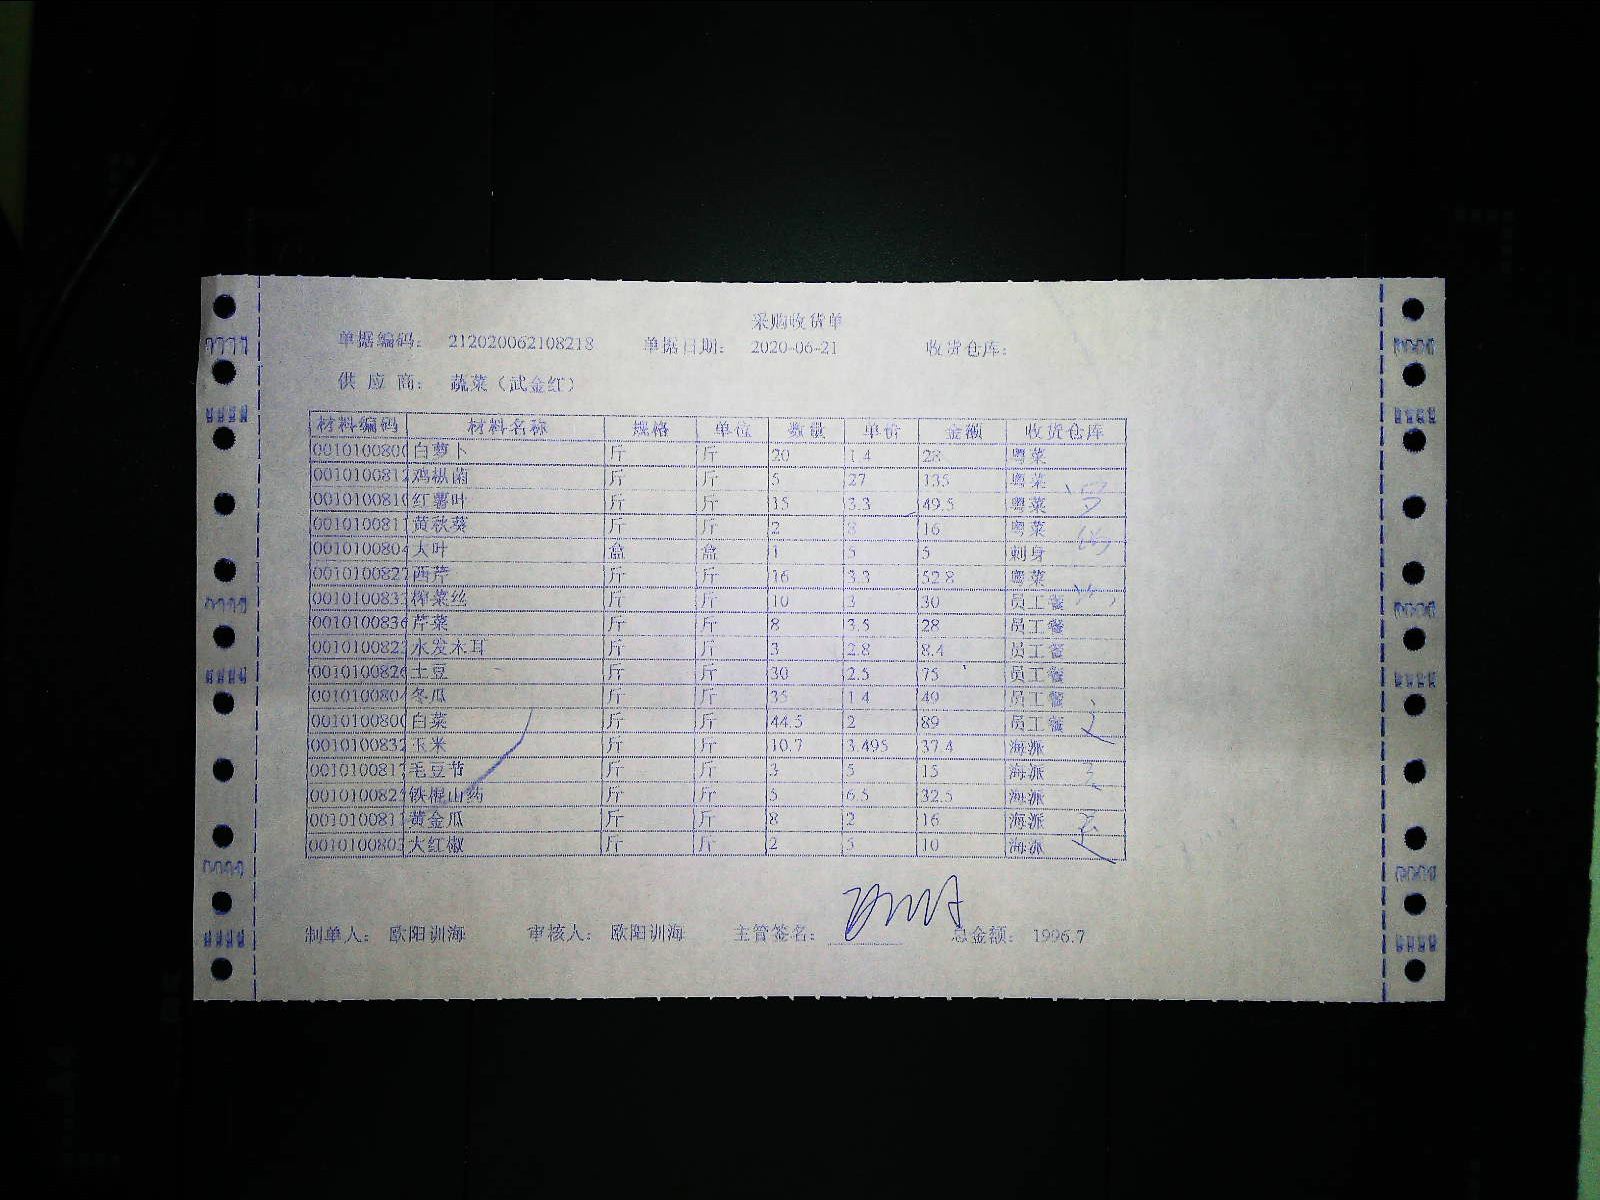 采购收货单
单据编码： 212020062108218 单据日期： 2020-06-21 收货仓库：
供 应 商： 蔬菜（武金红）
材料编码 材料名称 规格 单位 数量 单价 金额 收货仓库
0010100800 白萝卜 斤 斤 20 1.4 28 粤菜
001010081 鸡枞菌 斤 斤 5 27 135 粤菜
0010100810 红薯叶 斤 斤 15 3.3 49.5 粤菜
0010100811 黄秋葵 斤 斤 2 8 16 粤菜
0010100804 大叶 盒 盒 1 5 5 刺身
001010082 西芹 斤 斤 16 3.3 52.8 粤菜
001010083 榨菜丝 斤 斤 10 3 30 员工餐
0010100836 芹菜 斤 斤 8 3.5 28 员工餐
001010082 水发木耳 斤 斤 3 2.8 8.4 员工餐
0010100826 土豆 斤 斤 30 2.5 75 员工餐
0010100804 冬瓜 斤 斤 35 1.4 49 员工餐
0010100800 白菜 斤 斤 44.5 2 89 员工餐
0010100832 玉米 斤 斤 10.7 3.495 37.4 海派
001010081 毛豆节 斤 斤 3 5 15 海派
001010082 铁棍山药 斤 斤 5 6.5 32.5 海派
001010081 黄金瓜 斤 斤 8 2 16 海派
0010100803 大红椒 斤 斤 2 5 10 海派
制单人： 欧阳训海 审核人： 欧阳训海 主管签名： 总金额： 1996.7